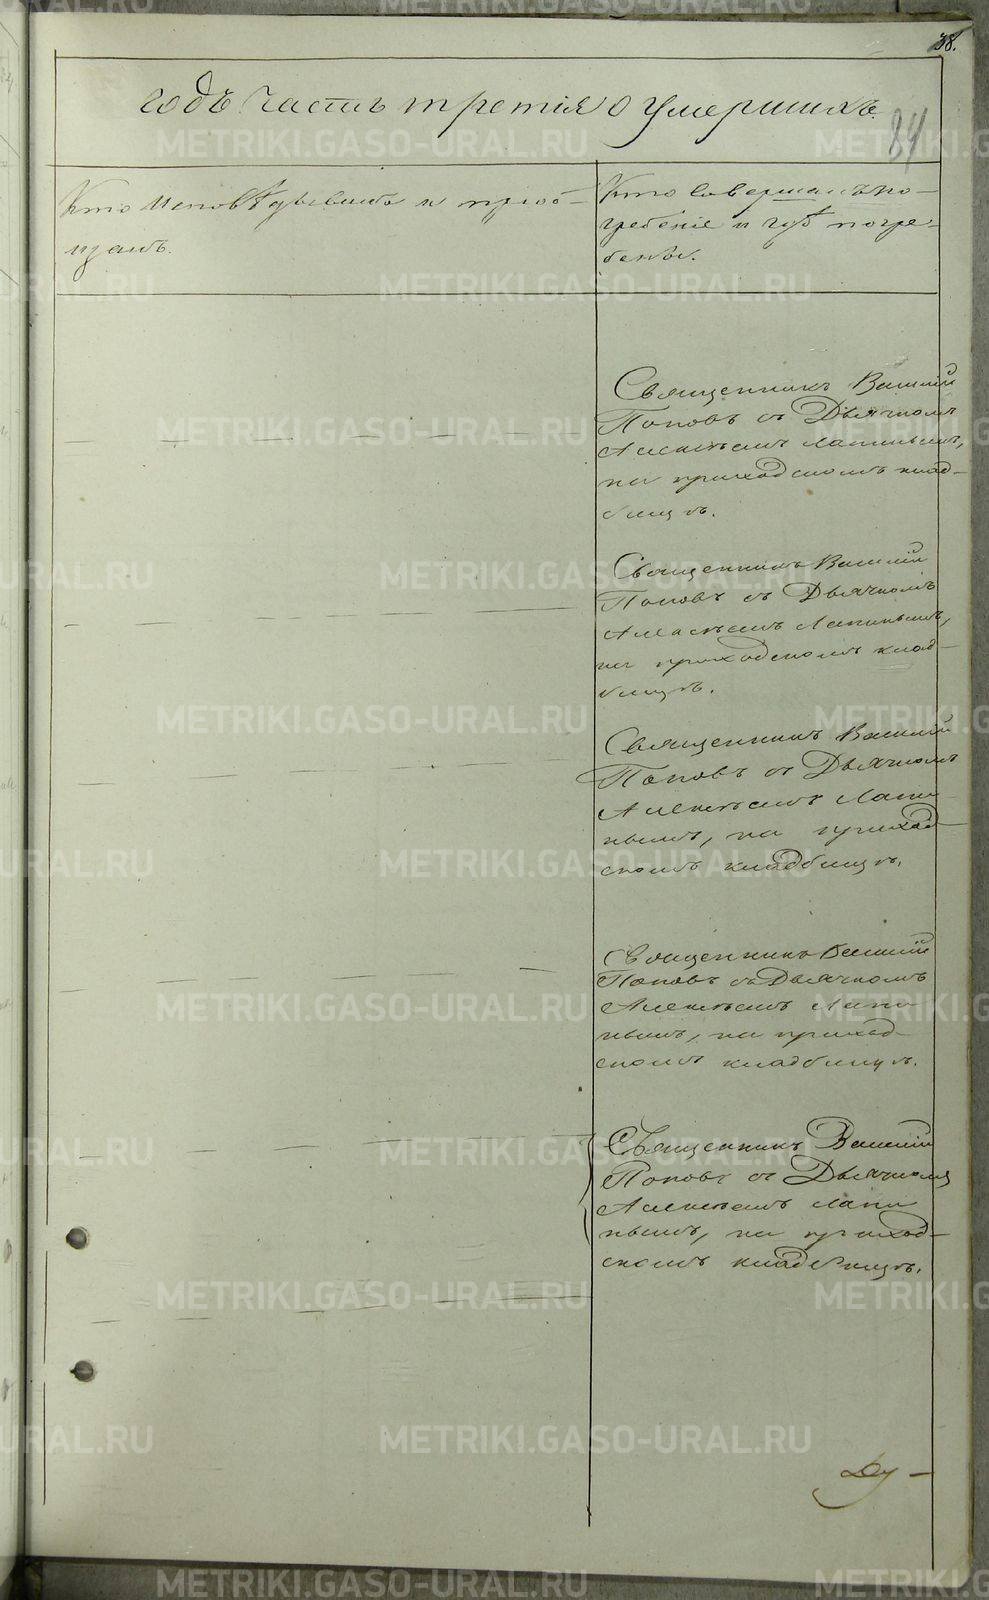 38.
годъ часть третія о умершихъ.
84
Кто исповѣдывалъ и пріоб-
щалъ.
Кто совершалъ по-
гребеніе и гдѣ погре-
бены.
Священникъ Василій
Поповъ съ Дьячкомъ
Алексѣемъ Лапинымъ,
на приходскомъ клад-
бищѣ.
Священникъ Василій
Поповъ съ Дьячкомъ
Алексѣемъ Лапинымъ,
на приходскомъ клад-
бищѣ.
Священникъ Василій
Поповъ съ Дьячкомъ
Алексѣемъ Лапи-
нымъ, на приход-
скомъ кладбищѣ.
Священникъ Василій
Поповъ съ Дьячкомъ
Алексѣемъ Лапи-
нымъ, на приход-
скомъ кладбищѣ.
Священникъ Василій
Поповъ съ Дьячкомъ
Алексѣемъ Лапи
нымъ, на приход-
скомъ кладбищѣ.
METRIKI.GASO-URAL.RU